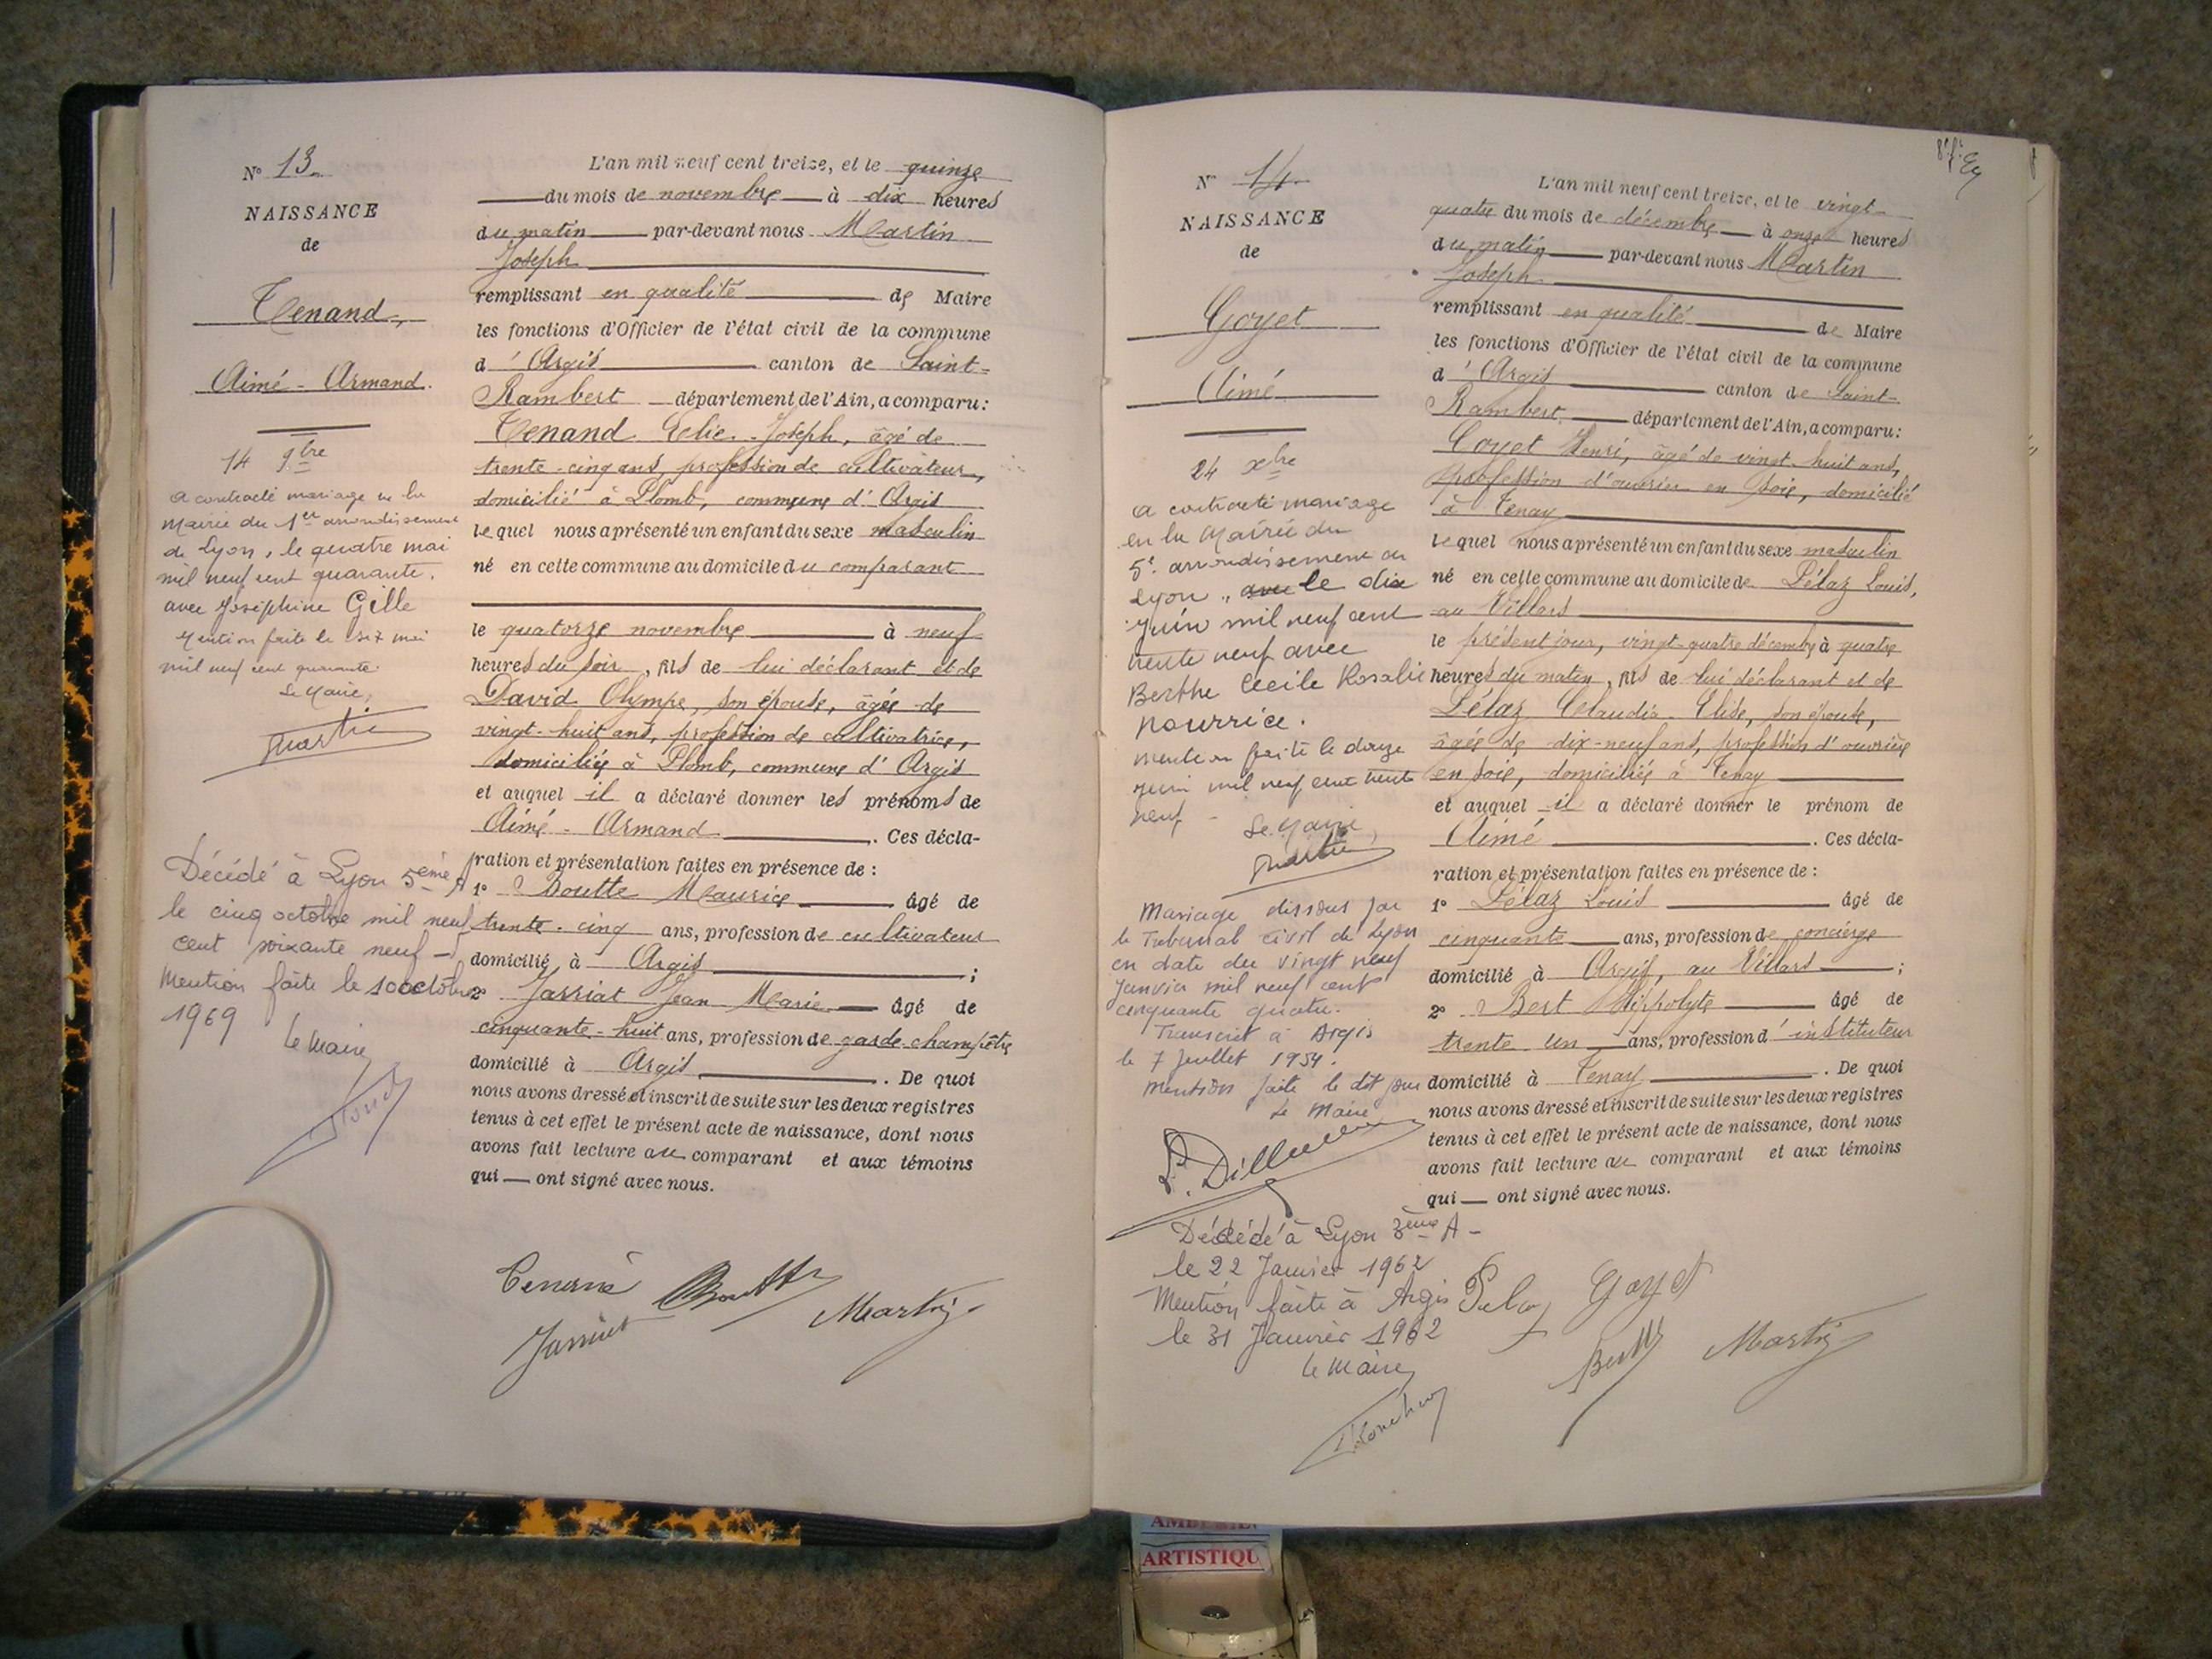 N° 13
NAISSANCE
de
Tenand
Aimé - Armand.
14 9bre
a contracté mariage en la
Mairie du 1er arrondissement
de Lyon, le quatre mai
mil neuf cent quarante,
avec Joséphine Gille
Mention faite le six mai
mil neuf cent quarante.
Le Maire,
Martin
Décédé à Lyon 5ème A
le cinq octobre mil neuf
cent soixante neuf -
Mention faite le 10 octobre
1969
Le Maire
L'an mil neuf cent treize, et le quinze
du mois de novembre à dix heures
du matin par-devant nous Martin
Joseph
remplissant en qualité de Maire
les fonctions d'Officier de l'état civil de la commune
d'Argis canton de Saint-
Rambert département de l'Ain, a comparu:
Tenand Elie-Joseph, âgé de
trente-cinq ans, profession de cultivateur,
domicilié à Plomb, commune d'Argis
lequel nous a présenté un enfant du sexe masculin
né en cette commune au domicile du comparant
le quatorze novembre à neuf
heures du soir, fils de lui déclarant et de
David Olympe, son épouse, âgée de
vingt-huit ans, profession de cultivatrice,
domiciliée à Plomb, commune d'Argis
et auquel il a déclaré donner les prénoms de
Aimé - Armand. Ces décla-
ration et présentation faites en présence de:
1° Doutte Maurice âgé de
trente-cinq ans, profession de cultivateur
domicilié à Argis;
2° Jarriat Jean Marie âgé de
cinquante-huit ans, profession de garde champêtre
domicilié à Argis. De quoi
nous avons dressé et inscrit de suite sur les deux registres
tenus à cet effet le présent acte de naissance, dont nous
avons fait lecture au comparant et aux témoins
qui ont signé avec nous.
Jarriat Martin
N° 14
NAISSANCE
de
Goyet
Aimé
24 xbre
a contracté mariage
en la Mairie du
5e arrondissement de
Lyon, avec le dix
juin mil neuf cent
trente neuf avec
Berthe Cécile Rosalie
Nourrice.
Mention faite le douze
juin mil neuf cent trente
neuf -
Le Maire,
Martin
Mariage dissous par
le Tribunal civil de Lyon
en date du vingt neuf
Janvier mil neuf cent
cinquante quatre.
Transcrit à Argis
le 7 Juillet 1954.
Mention faite le dit jour
Le Maire
Décédé à Lyon 3ème A -
le 22 Janvier 1962
Mention faite à Argis
le 31 Janvier 1962
Le Maire
L'an mil neuf cent treize, et le vingt-
quatre du mois de décembre à onze heures
du matin par-devant nous Martin
Joseph
remplissant en qualité de Maire
les fonctions d'Officier de l'état civil de la commune
d'Argis canton de Saint-
Rambert département de l'Ain, a comparu:
Goyet Henri, âgé de vingt-huit ans,
profession d'ouvrier en soie, domicilié
à Tenay
lequel nous a présenté un enfant du sexe masculin
né en cette commune au domicile de Pélaz Louis,
au Villars
le présent jour, vingt-quatre décembre à quatre
heures du matin, fils de lui déclarant et de
Pélaz Claudia-Elise, son épouse,
âgée de dix-neuf ans, profession d'ouvrière
en soie, domiciliée à Tenay
et auquel il a déclaré donner le prénom de
Aimé. Ces décla-
ration et présentation faites en présence de:
1° Pélaz Louis âgé de
cinquante ans, profession de concierge
domicilié à Argis, au Villars;
2° Bert Hippolyte âgé de
trente-un ans, profession d'instituteur
domicilié à Tenay. De quoi
nous avons dressé et inscrit de suite sur les deux registres
tenus à cet effet le présent acte de naissance, dont nous
avons fait lecture au comparant et aux témoins
qui ont signé avec nous.
Goyet
Martin
ARTISTIQU